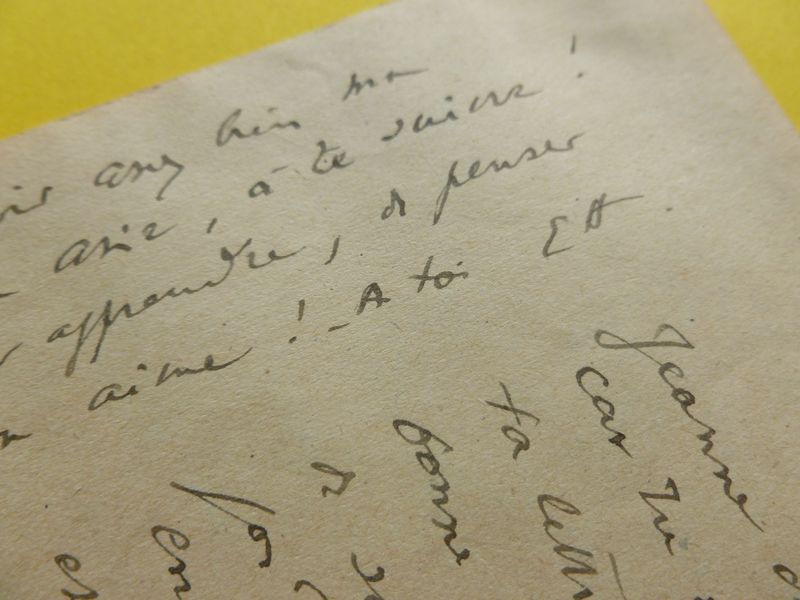 assez bien ma
asie, à te suivre !
apprendre, de penser
aime ! - A toi
Jeanne
car tu
ta lettr
bonne
de
en